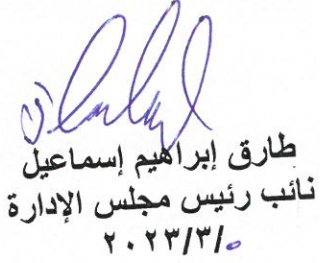 طارق إبراهيم إسماعيل
نائب رئيس مجلس الإدارة
٢٠٢٣/٣/٥